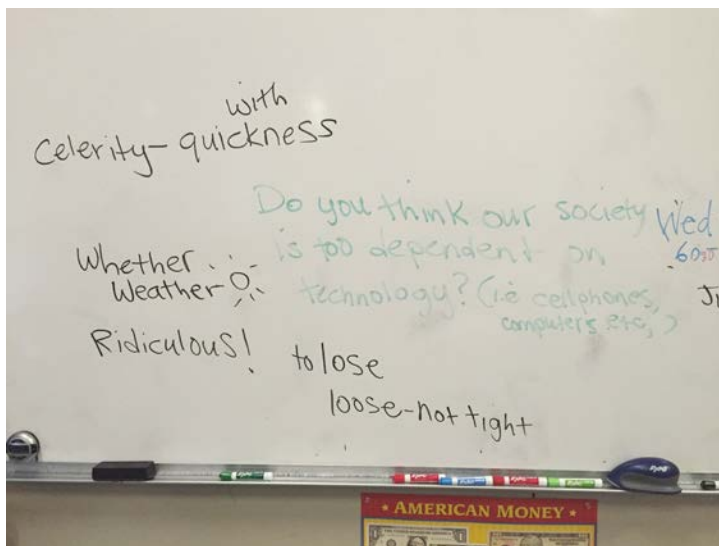 with
Celerity- quickness
Do you think our society
is too dependent on
technology? (i.e cellphones,
computers etc,)
Wed
Whether
Weather
Ridiculous!
to lose
loose-not tight
EXPO
AMERICAN MONEY